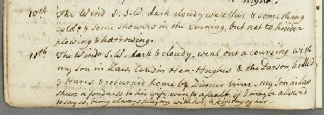 10th The Wind S.S.W. dark cloudy weather & something
cold, & some showers in the evening, but not to hinder
plowing & harrowing.
11th The Wind S.W. dark & cloudy, went out a coursing with
my Son in Law, Cousin Hen: Hughes & the Parson, killed
2 Hares & returned home by Dinner time. my Son in Law
shews a fondness to his wife even to a fault if I may be allowed
to say so, being always playing with her, & kissing of her.